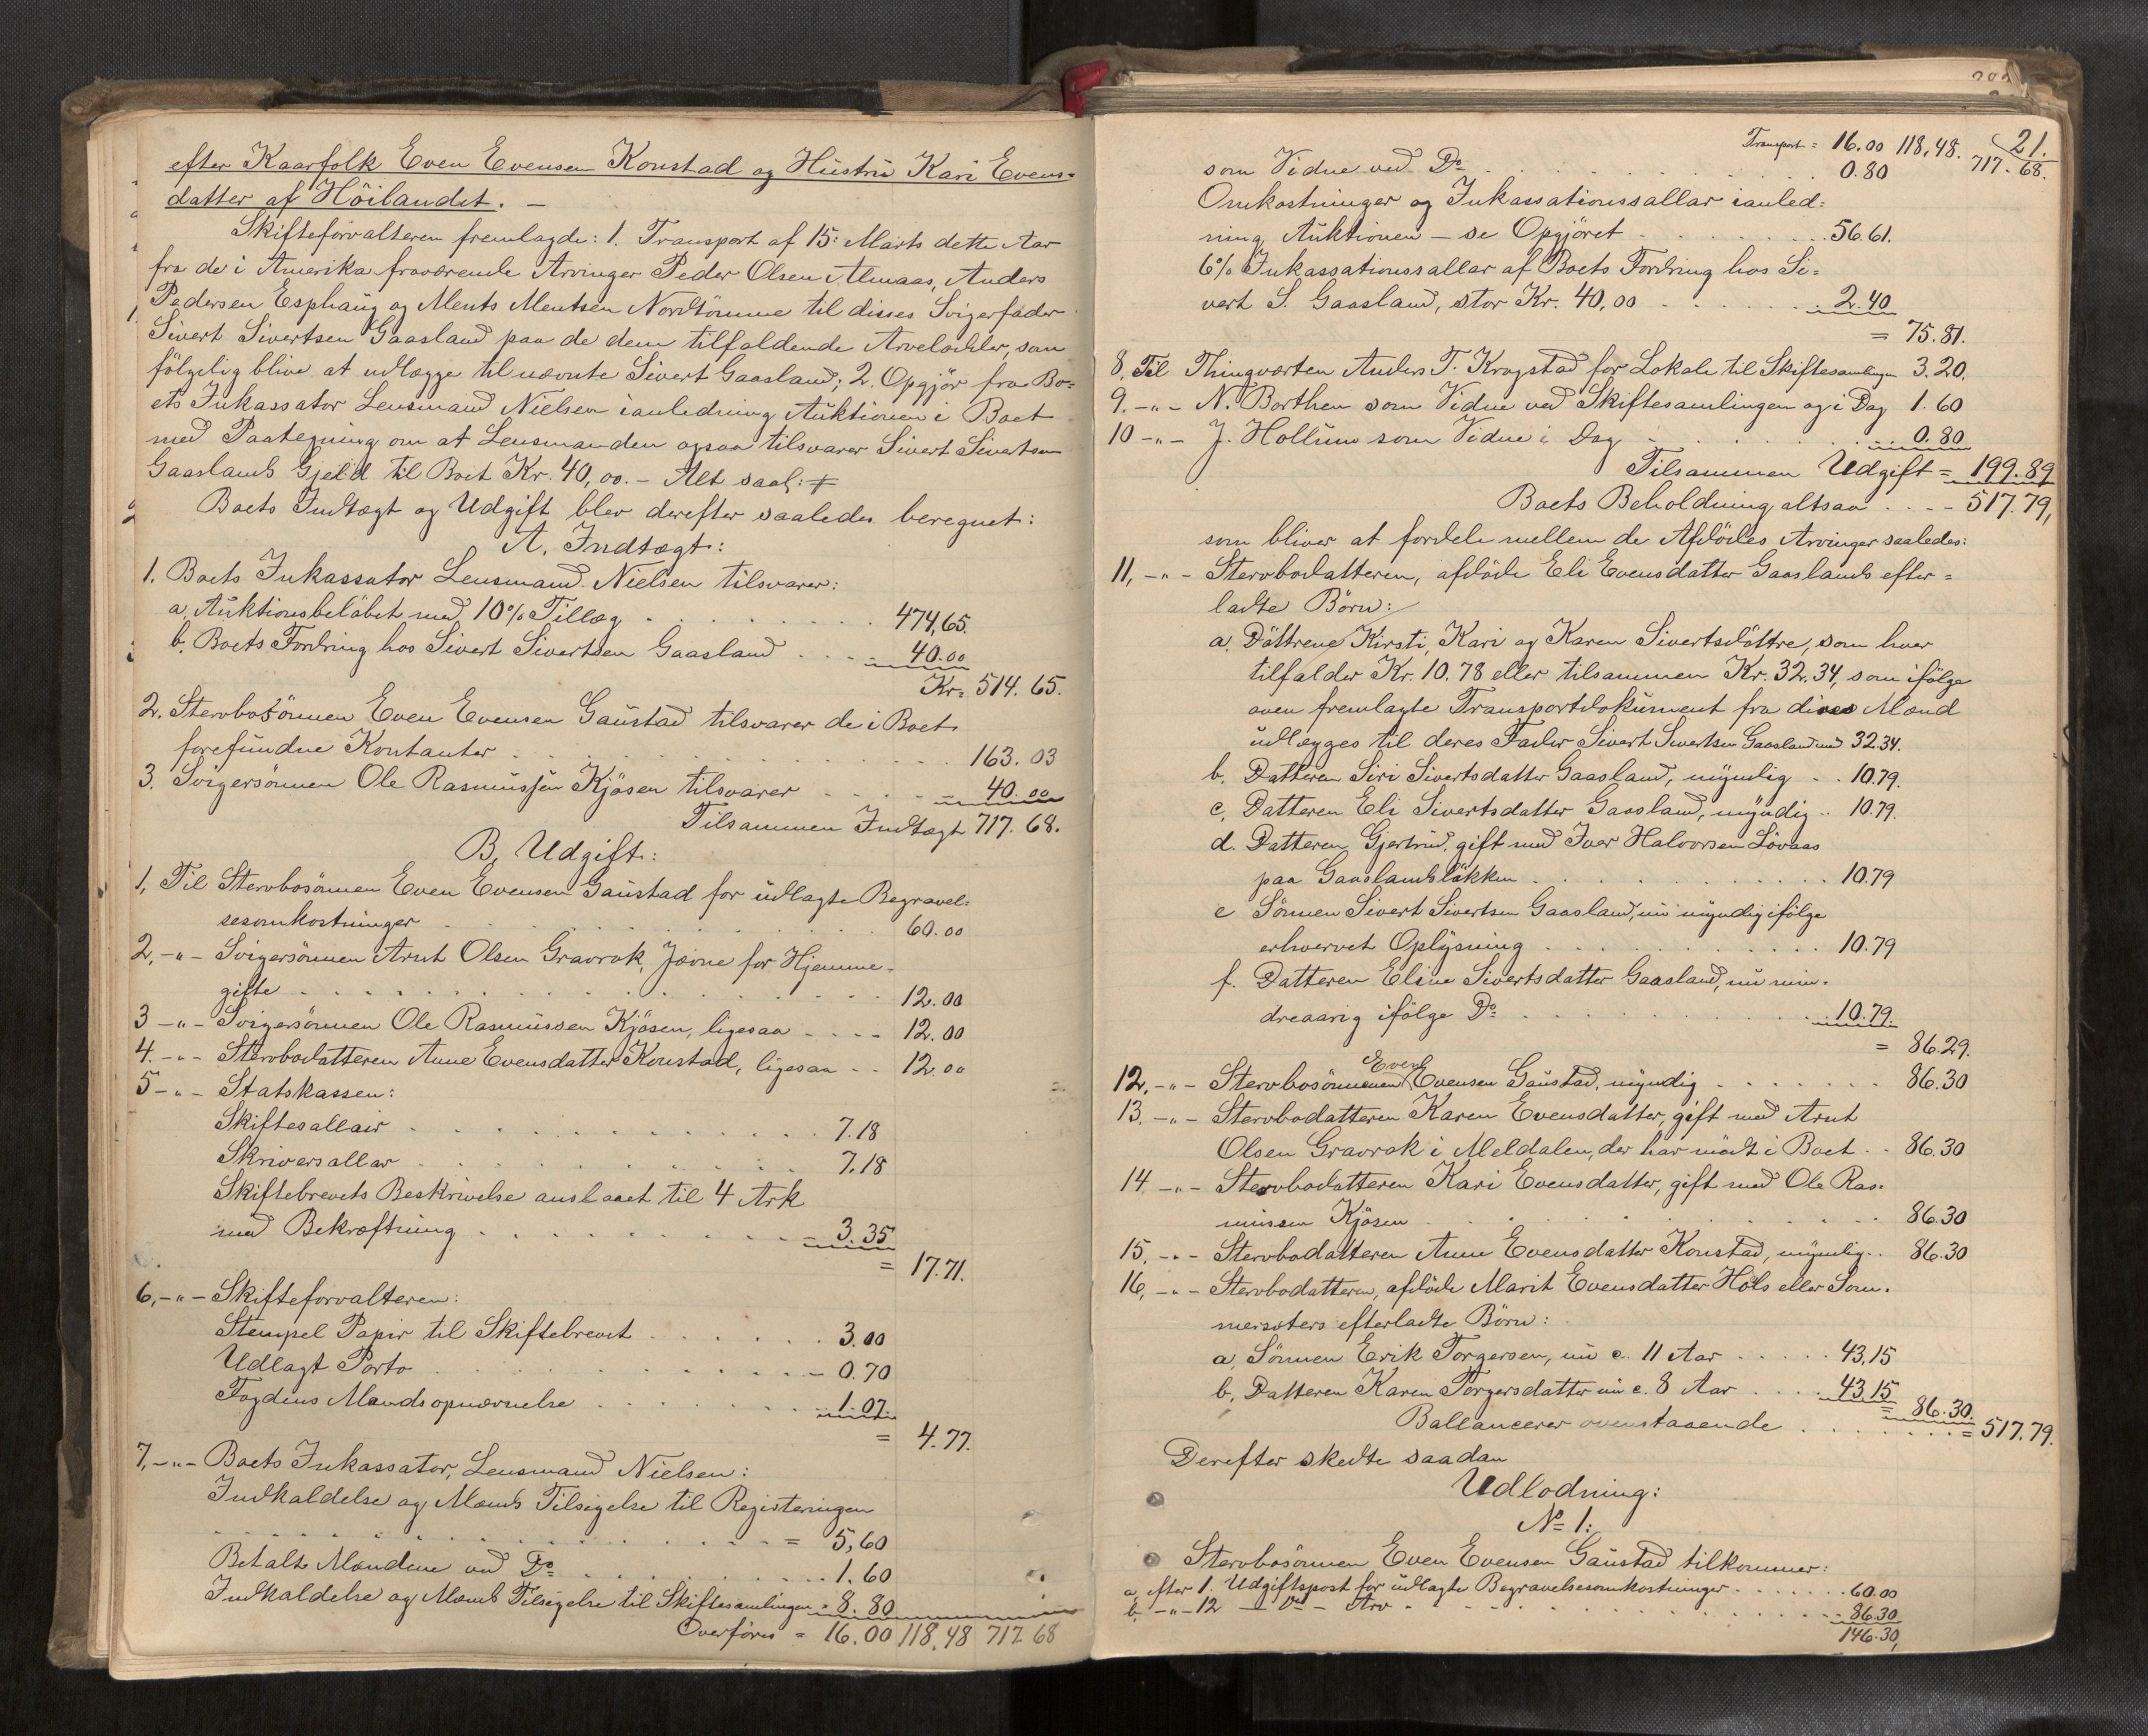 efter Kaarfolk Even Evensen Konstad og Hustru Kari Evens=
datter af Höilandet. —
Skifteforvalteren fremlagde: 1. Transport af 15: Marts dette Aar
fra de i Amerika fraværende Arvinger Peder Olsen Almaas, Anders
Pedersen Esphaug og Ments Mentsen Nordtömme til disses Svigerfader
Sivert Sivertsen Gaasland paa de dem tilfaldende Arvelodder, som
fölgelig blive at udlægge til nævnte Sivert Gaasland; 2. Opgjör fra Bo=
ets Inkassator Lensmand Nielsen ianledning Auktionen i Boet
med Paategning om at Lensmanden ogsaa tilsvarer Sivert Sivertsen
Gaaslands Gjeld til Boet Kr. 40,00. – Alt saal:
Boets Indtægt og Udgift blev derefter saaledes beregnet:
A. Indtægt:
1. Boets Inkassator Lensmand Nielsen tilsvarer:
a. Auktionsbelöbet med 10% Tillæg . . . 474,65.
b. Boets Fordring hos Sivert Sivertsen Gaasland . . . 40.00
Kr= 514.65.
2. Stervbosönnen Even Evensen Gaustad tilsvarer de i Boet
forefundne Kontanter . . . 163.03
3. Svigersönnen Ole Rasmussen Kjösen tilsvarer . . . 40.00
Tilsammen Indtægt 717.68.
B. Udgift:
1, Til Stervbosönnen Even Evensen Gaustad for udlagte Begravel=
sesomkostninger . . . 60.00
2, -"- Svigersönnen Arnt Olsen Gravrok, Jævne for Hjemme=
gifte . . . 12.00
3 -"- Svigersönnen Ole Rasmussen Kjösen, ligesaa . . . 12.00
4. -"- Stervbodatteren Anne Evensdatter Konstad, ligesaa . . 12.00
5 -"- Statskassen:
Skiftesallair . . . 7.18
Skriversallar . . . 7.18
Skiftebrevets Beskrivelse anslaaet til 4 Ark
med Bekræftning . . . 3.35
= 17.71.
6, -"- Skifteforvalteren:
Stempel Papir til Skiftebrevet . . . 3.00
Udlagt Porto . . . 0.70
Fogdens Mandsopnævnelse . . . 1.07.
= 4.77.
7, -"- Boets Inkassator, Lensmand Nielsen:
Indkaldelse og Mænds Tilsigelse til Registeringen
. . . = 5,60
Betalte Mændene ved Do . . . 1.60
Indkaldelse og Mænds Tilsigelse til Skiftesamlingen = 8.80
Overföres = 16.00 118,48 717 68
Transport = 16.00 118,48. 717.68.
21.
som Vidne ved Do . . . 0.80
Omkostninger og Inkassationssallar ianled=
ning Auktionen – se Opgjöret . . . 56.61.
6% Inkassationssallar af Boets Fordring hos Si=
vert S. Gaasland, stor Kr. 40,00 . . . 2.40
= 75.81.
8, Til Thingværten Anders T. Krogstad for Lokale til Skiftesamlingen 3.20.
9. -"- N. Borthen som Vidne ved Skiftesamlingen og i Dag 1.60
10 -"- J. Hollum som Vidne i Dag . . . 0.80
Tilsammen Udgift = 199.89
Boets Beholdning altsaa . . . 517.79,
som bliver at fordele mellem de Afdödes Arvinger saaledes:
11, -"- Stervbodatteren, afdöde Eli Evensdatter Gaaslands efter=
ladte Börn:
a. Döttrene Kirsti, Kari og Karen Sivertsdöttre, som hver
tilfalder Kr. 10.78 eller tilsammen Kr. 32.34, som ifölge
oven fremlagte Transportdokument fra disses Mænd
udlægges til deres Fader Sivert Sivertsen Gaasland med 32.34.
b. Datteren Siri Sivertsdatter Gaasland, myndig . . 10.79.
c, Datteren Eli Sivertsdatter Gaasland, myndig . . 10.79.
d. Datteren Gjertrud, gift med Iver Halvorsen Lövaas
paa Gaaslandslökken . . . 10.79
e Sönnen Sivert Sivertsen Gaasland, nu myndig ifölge
erhvervet Oplysning . . . 10.79
f. Datteren Eline Sivertsdatter Gaasland, nu min=
dreaarig ifölge Do . . . 10.79.
= 86.29.
12, -"- Stervbosönnen Even Evensen Gaustad, myndig . . . 86.30
13. -"- Stervbodatteren Karen Evensdatter, gift med Arnt
Olsen Gravrok i Meldalen, der har mödt i Boet . . 86.30
14 -"- Stervbodatteren Kari Evensdatter, gift med Ole Ras=
mussen Kjösen . . . 86.30
15, -"- Stervbodatteren Anne Evensdatter Konstad, myndig . . 86.30
16, -"- Stervbodatteren, afdöde Marit Evensdatter Hols eller Som=
mersæters efterladte Börn:
a, Sönnen Erik Torgersen, nu c. 11 Aar . . . 43,15
b, Datteren Karen Torgersdatter nu c. 8 Aar . . . 43.15
= 86.30.
Ballancerer ovenstaaende . . . = 517.79.
Derefter skedte saadan
Udlodning:
No 1:
Stervbosönnen Even Evensen Gaustad tilkommer:
a, efter 1. Udgiftspost for udlagte Begravelsesomkostninger . . . 60.00
b, -"- 12 — Do - Arv . . . 86.30
146.30,